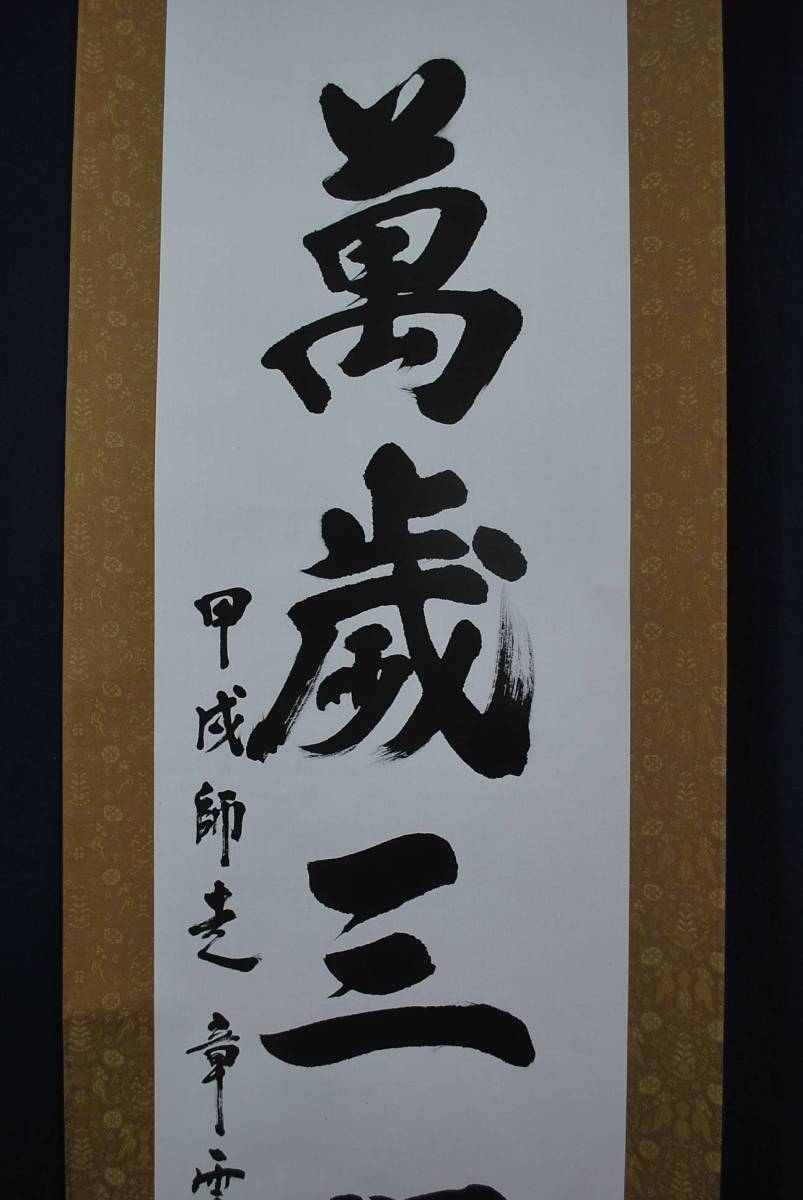 萬歲三
甲戌師走 章雲